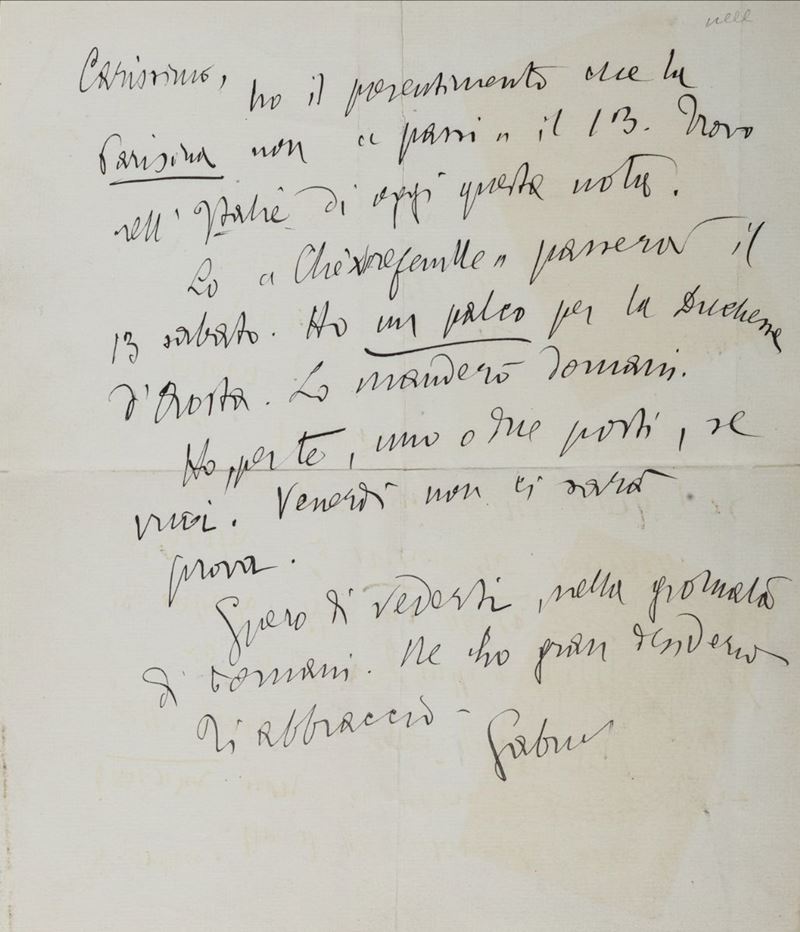 Carissimo,
ho il presentimento che la
Parisina non « passi » il 13. Trovo
nell' Italie di oggi questa nota.
Lo « Chèvrefeuille » passerà il
13 sabato. Ho un palco per la Duchessa
d'Aosta. Lo manderò domani.
Ho, per te, uno o due posti, se
vuoi. Venerdì non ci sarà
prova.
Spero di vederti, nella giornata
di domani. Ne ho gran desiderio
Ti abbraccio –
Gabriel